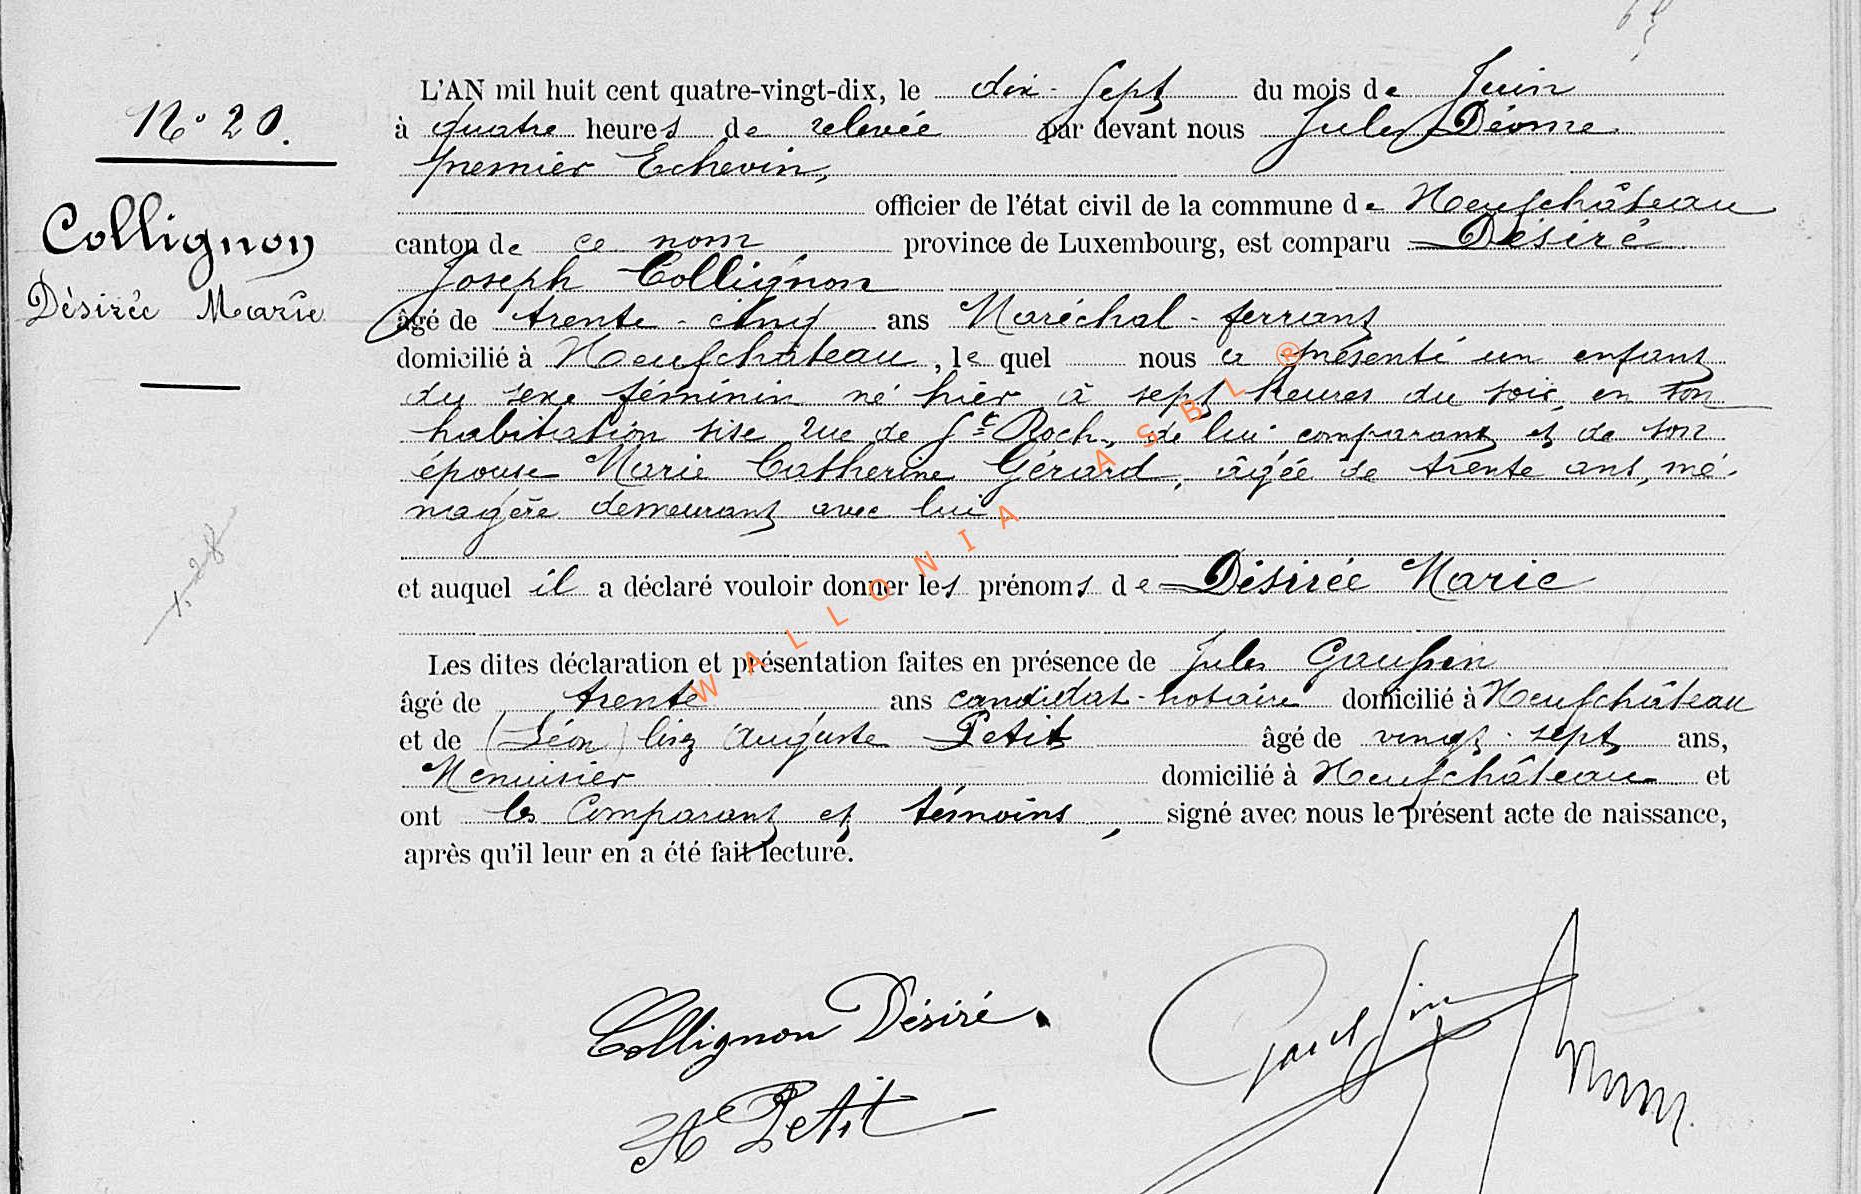 L'AN mil huit cent quatre-vingt-dix, le dix-sept du mois de Juin
N° 20.
à quatre heures de relevée par devant nous Jules Déome
premier Echevin,
officier de l'état civil de la commune de Neufchâteau
Collignon
Désirée Marie
canton de ce nom province de Luxembourg, est comparu Désiré
Joseph Collignon
âgé de trente-cinq ans Maréchal-ferrant
domicilié à Neufchâteau, le quel nous a présenté un enfant
du sexe féminin né hier à sept heures du soir, en son
habitation sise rue de St Roch, de lui comparant et de son
épouse Marie Catherine Gérard, âgée de trente ans, mé-
nagère demeurant avec lui
et auquel il a déclaré vouloir donner les prénoms de Désirée Marie
Les dites déclaration et présentation faites en présence de Jules Gaussin
âgé de trente ans candidat-notaire domicilié à Neufchâteau
et de (Léon) lisez Auguste Petit âgé de vingt-sept ans,
Menuisier domicilié à Neufchâteau et
ont les comparant et témoins, signé avec nous le présent acte de naissance,
après qu'il leur en a été fait lecture.
WALLONIA ASBL ®
Collignon Désiré
Gaussin
A Petit